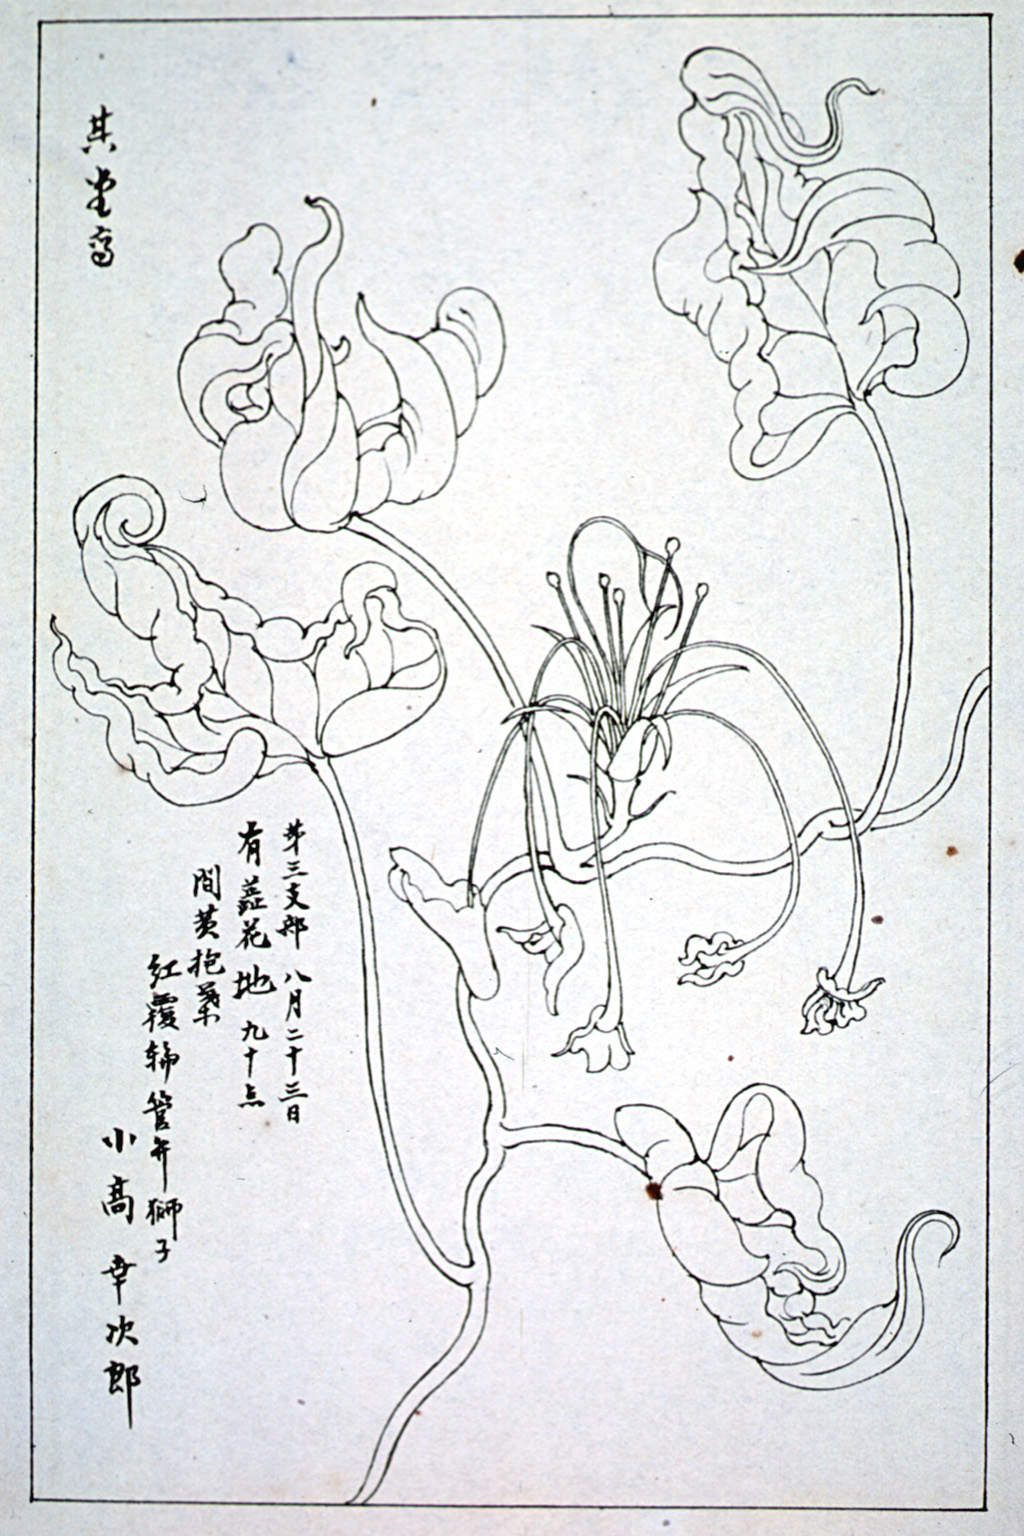 第三支部 八月二十三日
有蕋花地 九十点
間黄抱葉
紅覆輪管弁獅子
小高幸次郎
其堂寫